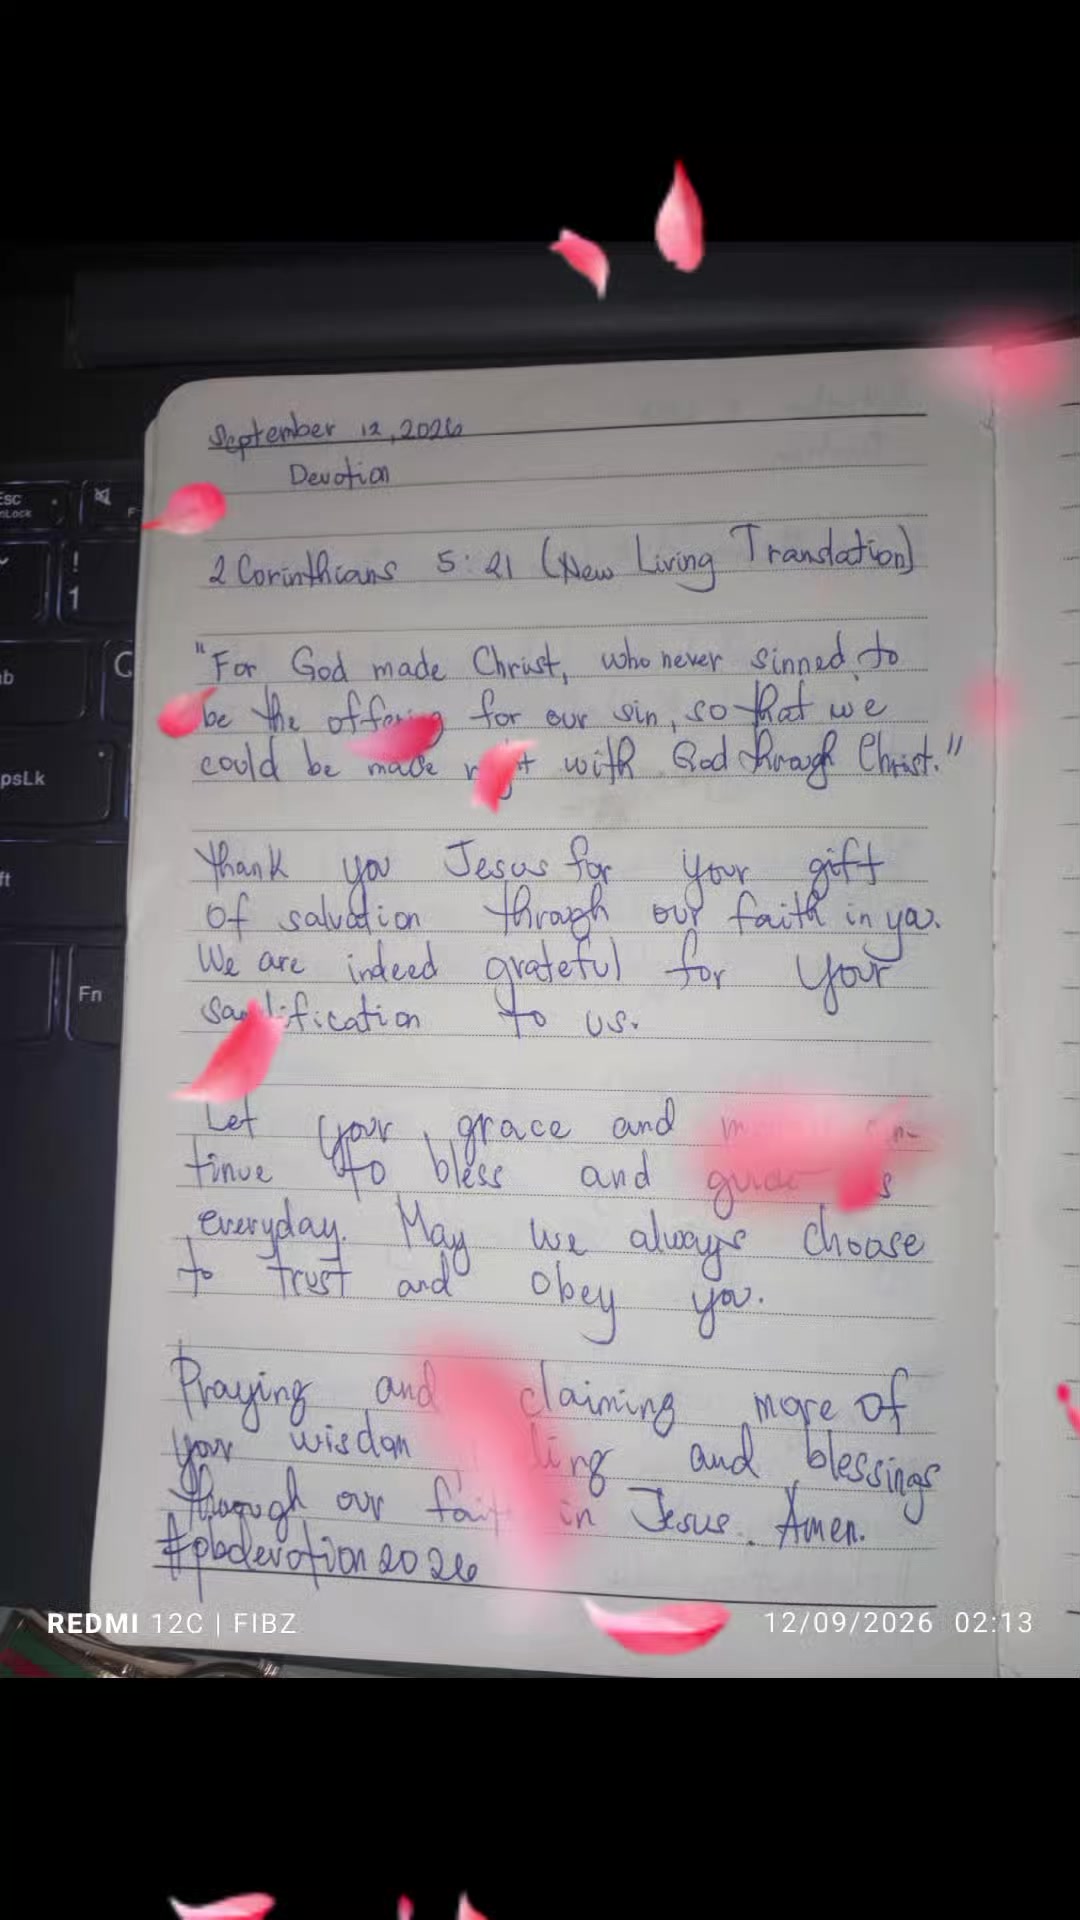 September 12, 2026
Devotion
2 Corinthians 5:21 (New Living Translation)
"For God made Christ, who never sinned to
be the offering for our sin, so that we
could be made right with God through Christ."
Thank you Jesus for your gift
of salvation through our faith in you.
We are indeed grateful for your
to us.
Let your grace and
tinue to bless and guide us
everyday. May we always choose
to trust and obey you.
Praying and claiming more of
your wisdom and blessings
through our faith in Jesus. Amen.
#pbdevotion2026
REDMI 12C | FIBZ
12/09/2026 02:13
Esc
F
!
1
psLk
Fn